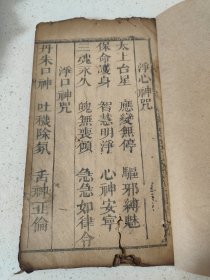 淨心神咒
太上台星　應變無停　驅邪縛魅
保命護身　智慧明淨　心神安寧
三魂永久　魄無喪傾　急急如律令
淨口神咒
丹朱口神　吐穢除氛　舌神正倫